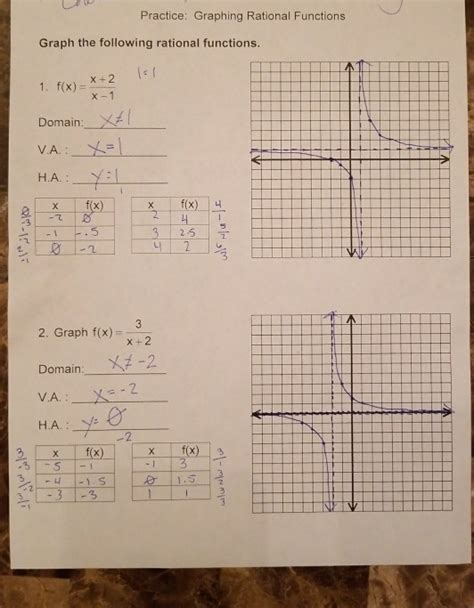 Practice: Graphing Rational Functions
Graph the following rational functions.
1. f(x) = x+2 / x-1
1=1
Domain: x≠1
V.A. : x=1
H.A. : y=1
1
x f(x)
-2 0
-1 -.5
0 -2
x f(x)
2 4
3 2.5
4 2
0/-3
4/1
5/2
6/3
2. Graph f(x) = 3 / x+2
Domain: x≠-2
V.A. : x=-2
H.A. : y=0
-2
x f(x)
-5 -1
-4 -1.5
-3 -3
x f(x)
-1 3
0 1.5
1 1
3/-3
3/-2
3/-1
3/2
3/3